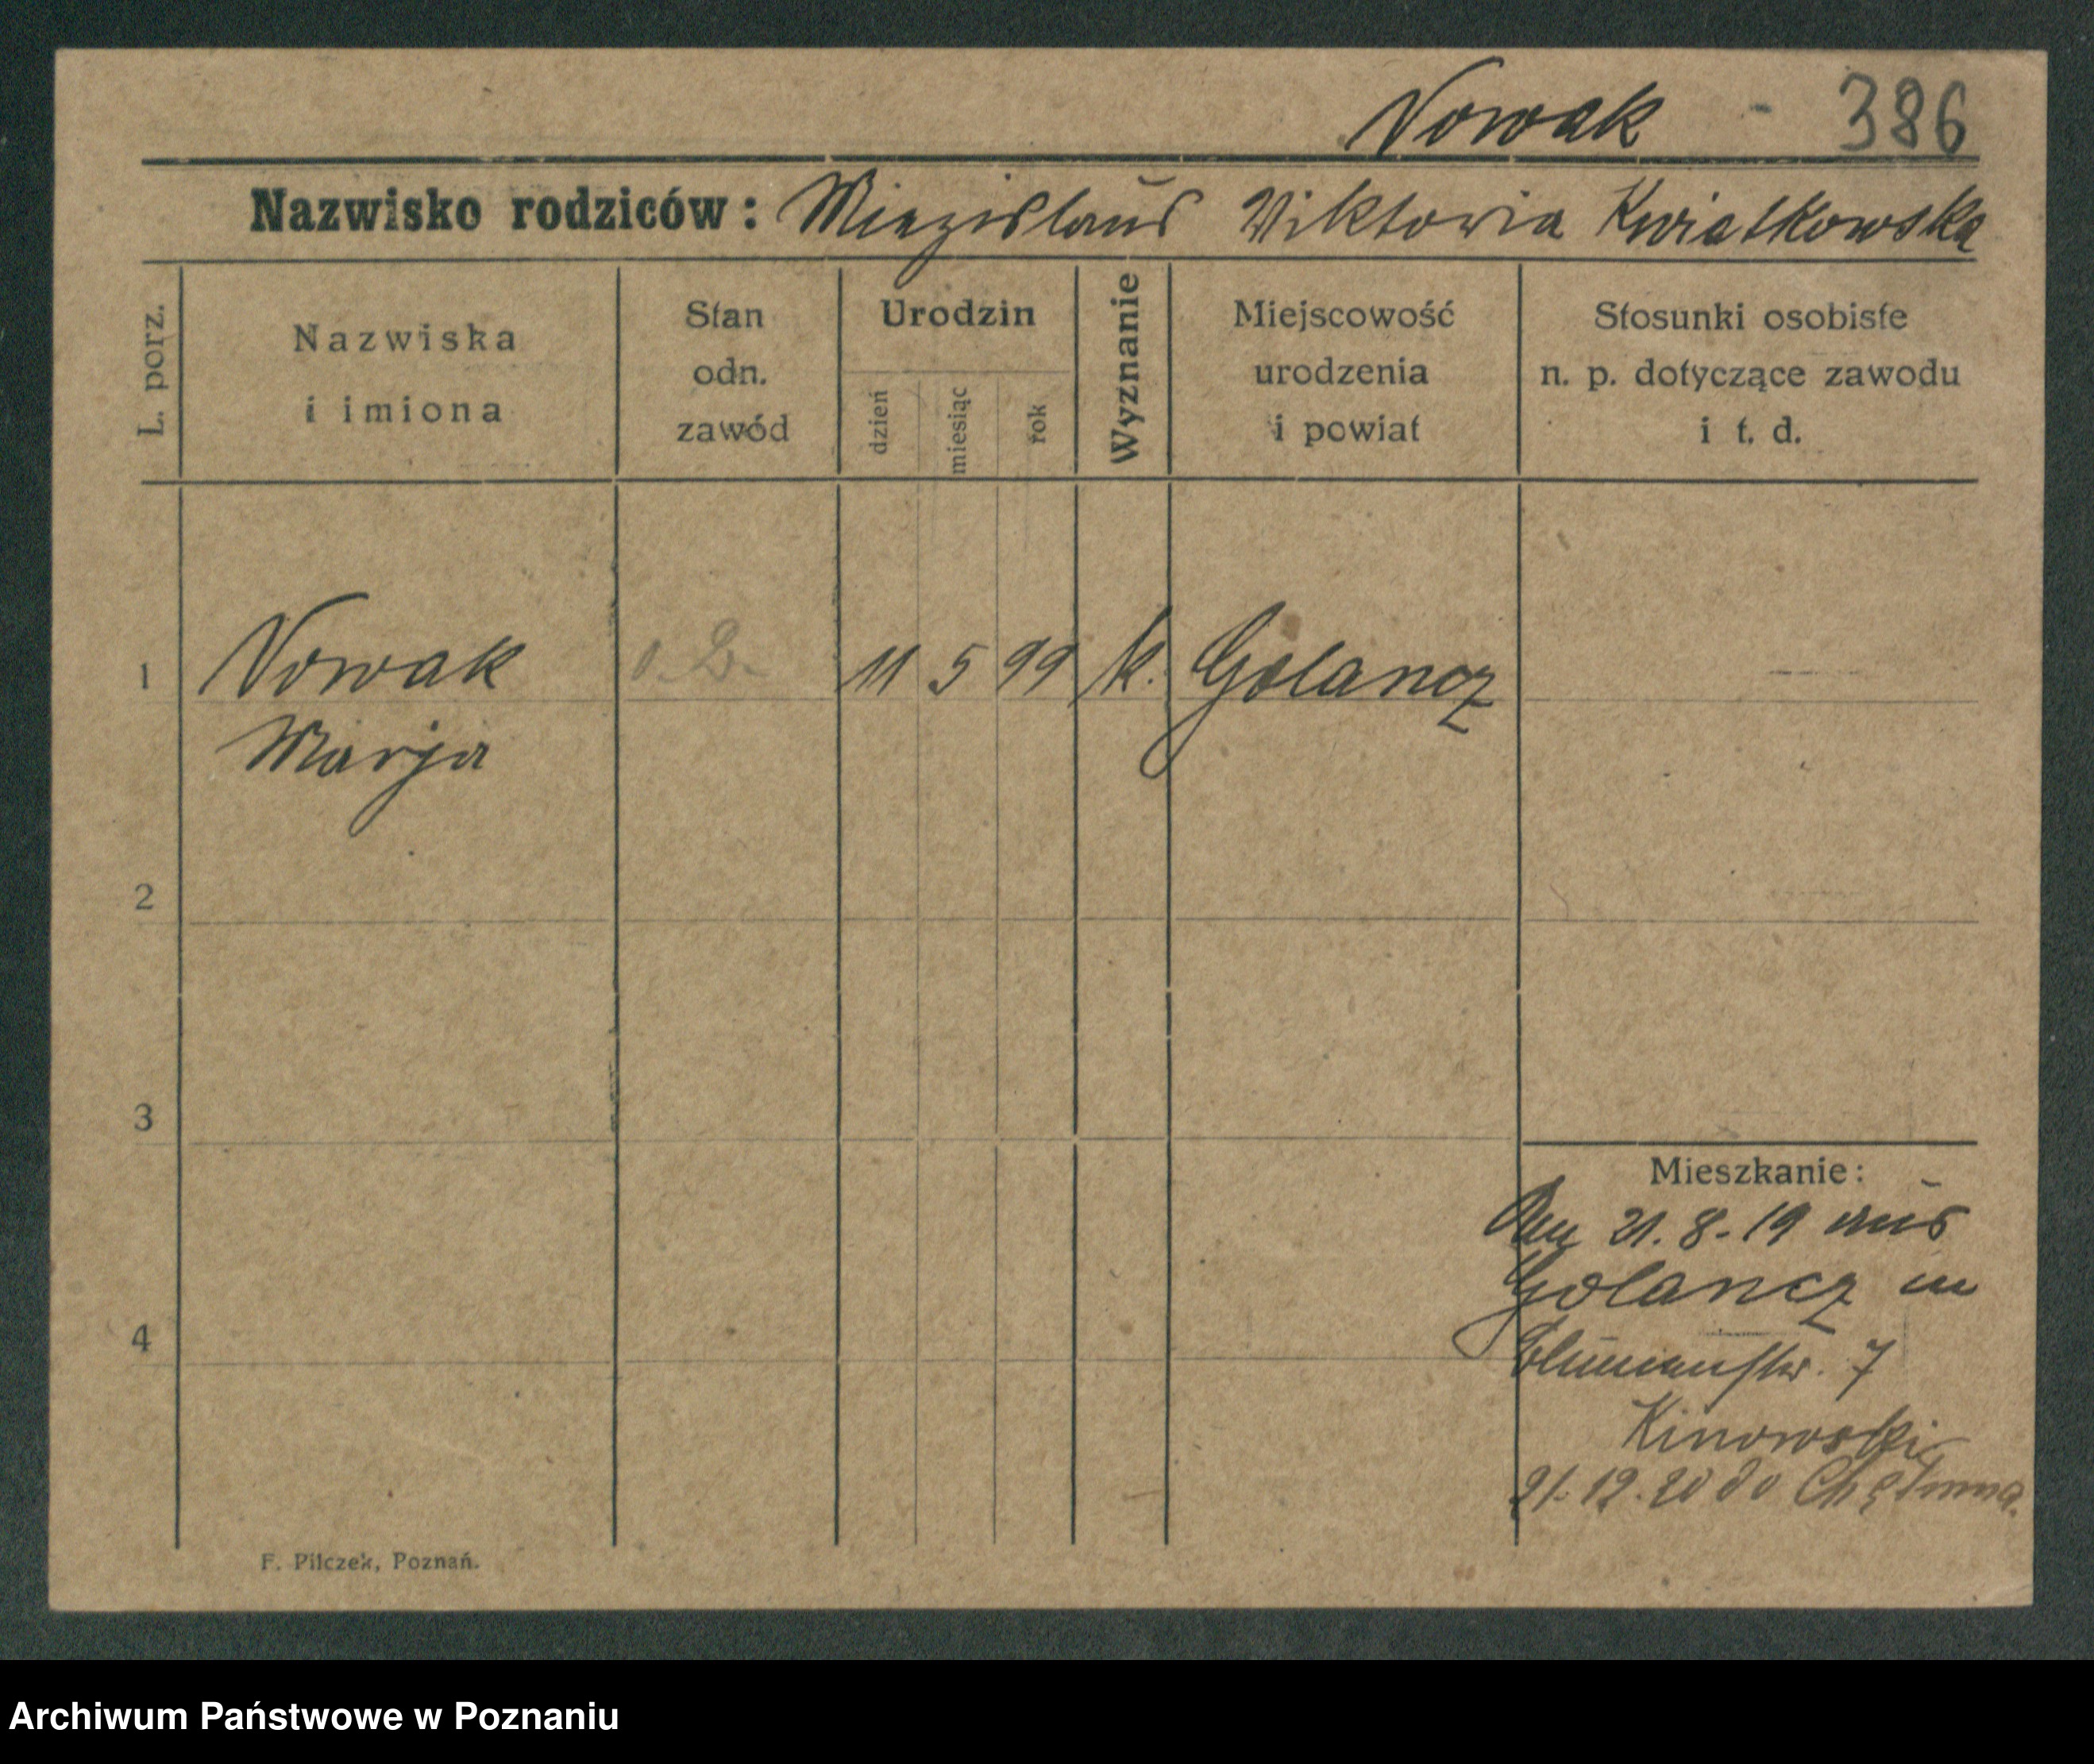 Nowak - 386
Nazwisko rodziców: Miezislaus Wiktoria Kwiatkowska
L. porz.
Nazwiska
i imiona
Stan
odn.
zawód
Urodzin
dzień
miesiąc
rok
Wyznanie
Miejscowość
urodzenia
i powiat
Stosunki osobiste
n. p. dotyczące zawodu
i t. d.
1 Nowak 11 5 99 k. Golancz
Marja
2
3
Mieszkanie:
21.8.19 aus
Golancz in
4
Blumenstr. 7
Kinowski
21.12.20 do
F. Pilczek, Poznań.
Archiwum Państwowe w Poznaniu